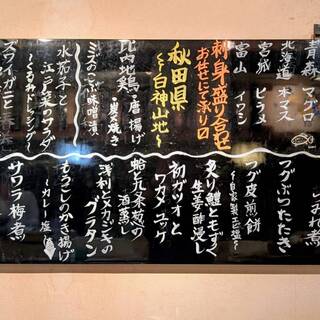 青森 マグロ
北海道 本マス
宮城 ヒラメ
富山 イワシ
刺身盛り合せ
お任せにて承り〼
秋田県
〜白神山地〜
比内地鶏・唐揚げ
・炭火焼き
ミスのこぶ味噌漬
水茄子と
江戸菜のサラダ
〜くるみドレッシング〜
ズワイガニと
つみれ煮
フグぶつたたき
フグ皮煎餅
炙り鱧ともずく
生姜酢浸し
初ガツオと
ワカメユッケ
蛤と九条葱の
酒蒸し
浅利とメカジキの
グラタン
もろこしのかき揚げ
〜カレー塩〜
サワラ梅煮